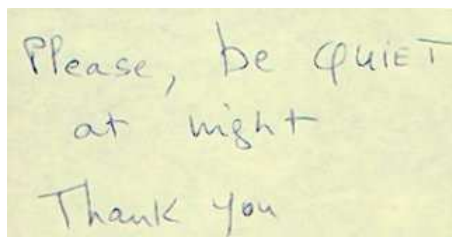 Please, be QUIET
at night
Thank you